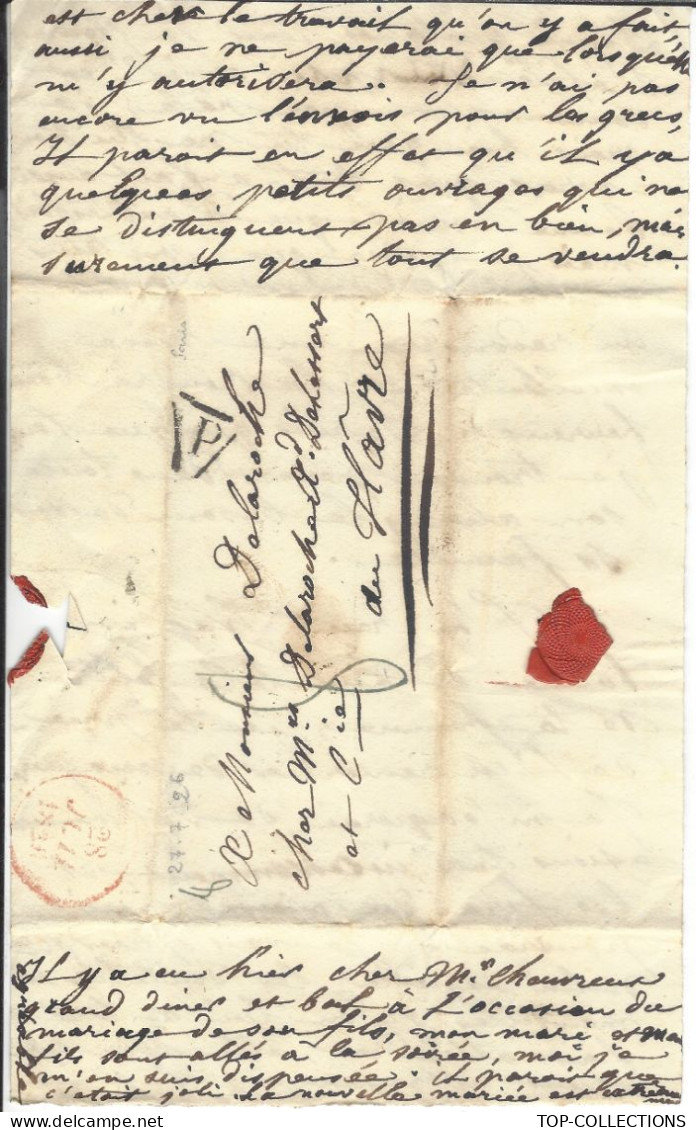 est cher le travail qu'on y a fait,
aussi je ne payerai que lorsqu'elle
m'y autorisera. Je n'ai pas
encore vu l'envois pour les grecs,
Il parait en effet qu'il y a
quelques petits ouvrages qui ne
se distinguent pas en bien, mais
surement que tout se vendra.
Paris
P
A Monsieur Delaroche
cher Mrs Delaroche Ad. Delessert
et Cie
au Hâvre
27.7.26
28
JUIL
Il y a eu hier cher Mr. Chauvreux
grand diner et bal à l'occasion du
mariage de son fils, mon mari et mon
fils sont allés à la soirée, moi je
m'en suis dispensée. il parait que
c'était joli. La nouvelle mariée est
TOP-COLLECTIONS